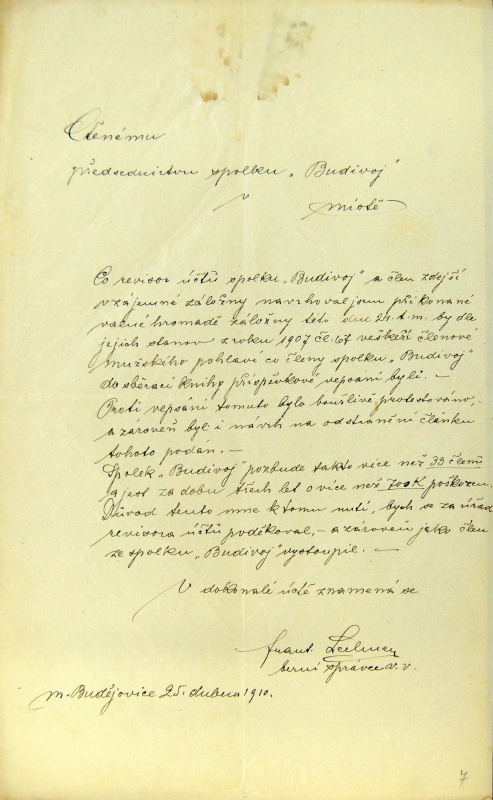 Ctěnému
předsednictvu spolku „Budivoj"
v
místě
Co revisor účtů spolku „Budivoj" a člen zdejší
vzájemné záložny navrhoval jsem při konané
valné hromadě záložny této dne 24. t. m. by dle
jejich stanov z roku 1907 čl. 67 veškeří členové
mužského pohlaví co členy spolku „Budivoj"
do sběrací knihy příspěvkové vepsáni byli. —
Proti vepsání tomuto bylo bouřlivě protestováno, –
a zároveň byl i návrh na odstranění článku
tohoto podán. —
Spolek „Budivoj" pozbude takto více než 33 členů
a jest za dobu třech let o více než 700 K poškozen.
Důvod tento mne k tomu nutí, bych se za úřad
revisora účtů poděkoval, – a zároveň jako člen
ze spolku „Budivoj" vystoupil. —
V dokonalé úctě znamená se
frant.
berní správce v. v.
M. Budějovice 25. dubna 1910.
7